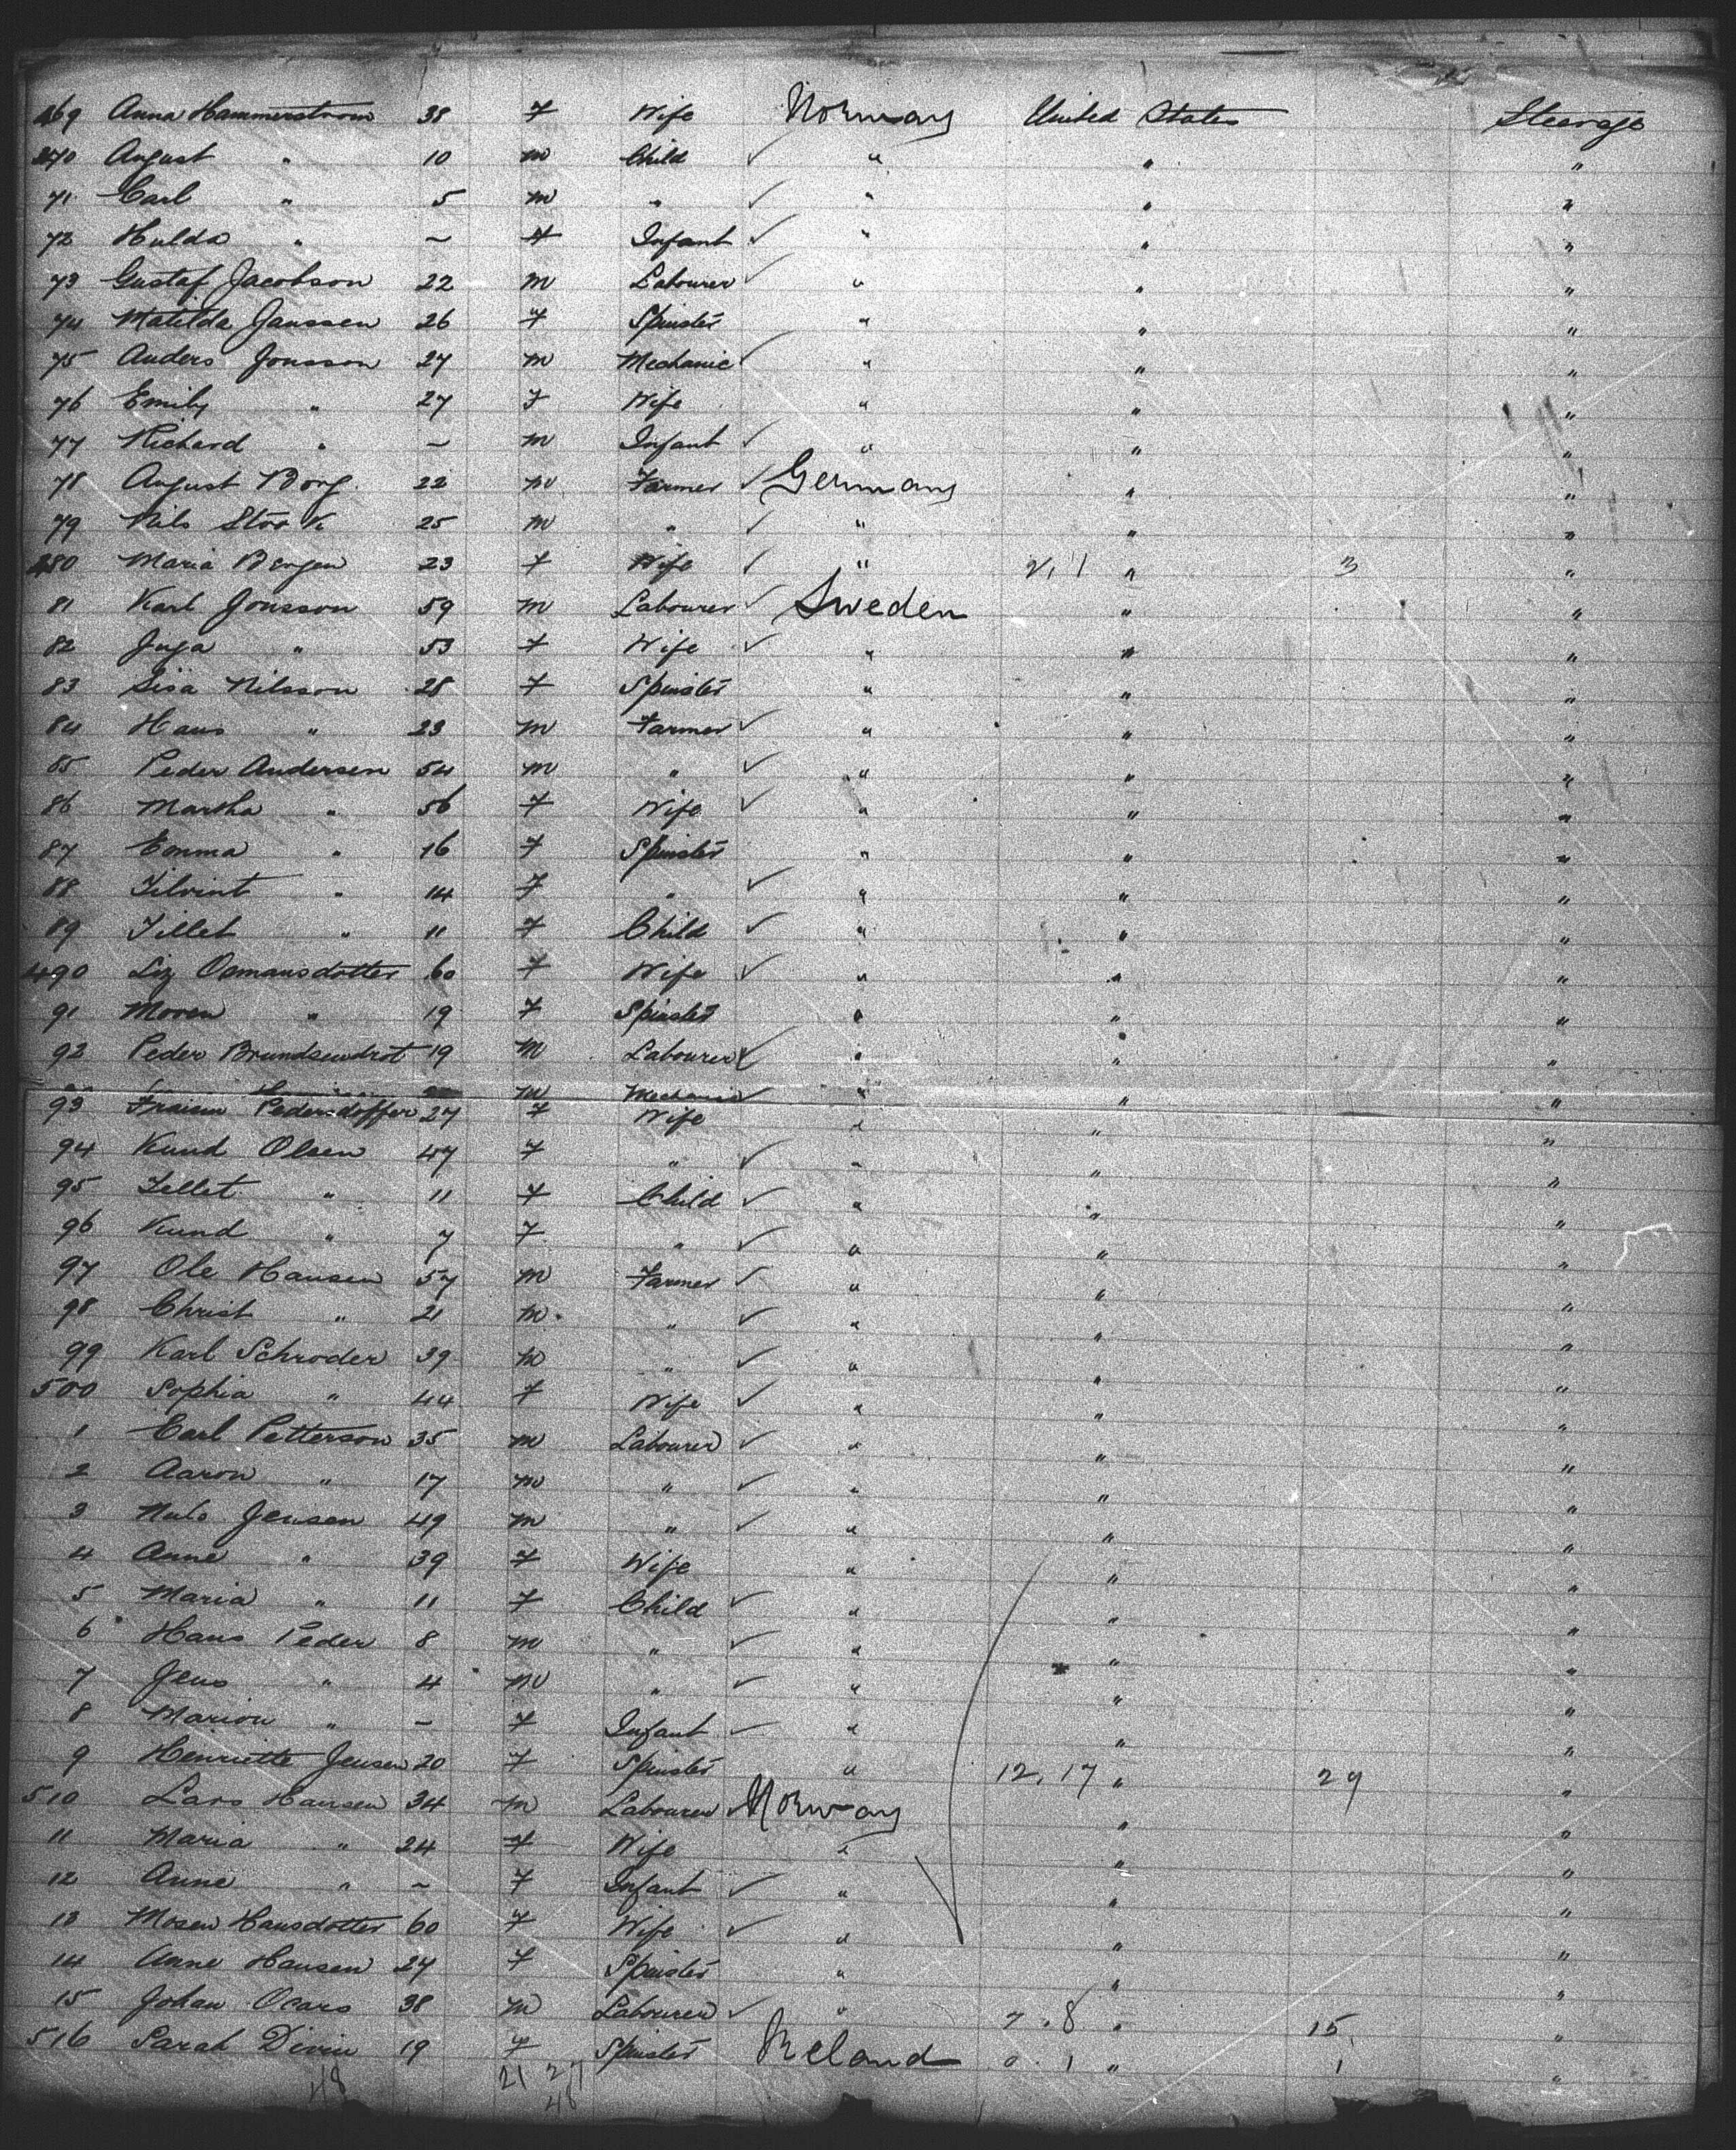 469 Anna Hammerstrom 38 F Wife Norway United States Steerage
470 August " 10 m Child ✓ " " "
71 Carl " 5 m " ✓ " " "
72 Hulda " ~ F Infant ✓ " " "
73 Gustaf Jacobson 22 m Labourer ✓ " " "
74 Matilda Janssen 26 F Spinster " " "
75 Anders Jonsson 27 m Mechanic ✓ " " "
76 Emily " 27 F Wife " " "
77 Richard " ~ m Infant ✓ " " "
78 August Borg 22 m Farmer ✓ Germany " "
79 Nils Stork 25 m " ✓ " " "
480 Maria Bergen 23 F Wife ✓ " 2, 1 " 3 "
81 Karl Jonsson 59 m Labourer ✓ Sweden " "
82 Inga " 53 F Wife ✓ " " "
83 Sisa Nilsson 28 F Spinster " " "
84 Hans " 23 m Farmer ✓ " " "
85 Peder Andersen 54 m " ✓ " " "
86 Martha " 56 F Wife ✓ " " "
87 Emma " 16 F Spinster " " "
88 " 14 F " ✓ " " "
89 Tillet " 11 F Child ✓ " " "
490 Liz Osmansdotter 60 F Wife ✓ " " "
91 Moren " 19 F Spinster " " "
92 Peder 19 m Labourer ✓ " " "
m Mechanic ✓ " " "
93 Pedersdoffer 27 F Wife " " "
94 Kund Olsen 47 F " ✓ " " "
95 Tellet " 11 F Child ✓ " " "
96 Kund " 7 F " ✓ " " "
97 Ole Hansen 57 m Farmer ✓ " " "
98 Christ " 21 m " ✓ " " "
99 Karl Schroder 39 m " ✓ " " "
500 Sophia " 44 F Wife ✓ " " "
1 Carl Petterson 35 m Labourer ✓ " " "
2 Aaron " 17 m " ✓ " " "
3 Jensen 49 m " ✓ " " "
4 Anne " 39 F Wife " " "
5 Maria " 11 F Child ✓ " " "
6 Hans Peder 8 m " ✓ " " "
7 Jens " 4 m " ✓ " " "
8 Marion " ~ F Infant ✓ " " "
9 Henriette Jensen 20 F Spinster " 12, 17 " 29 "
510 Lars Hansen 34 m Labourer ✓ Norway " "
11 Maria " 24 F Wife " " "
12 Anne " ~ F Infant ✓ " " "
13 Mosen Hansdotter 60 F Wife ✓ " " "
14 Anne Hansen 27 F Spinster " " "
15 Johan Ocars 38 m Labourer ✓ " 7, 8 " 15 "
516 Sarah Divin 19 F Spinster Ireland 0, 1 " 1 "
48 21 27
48